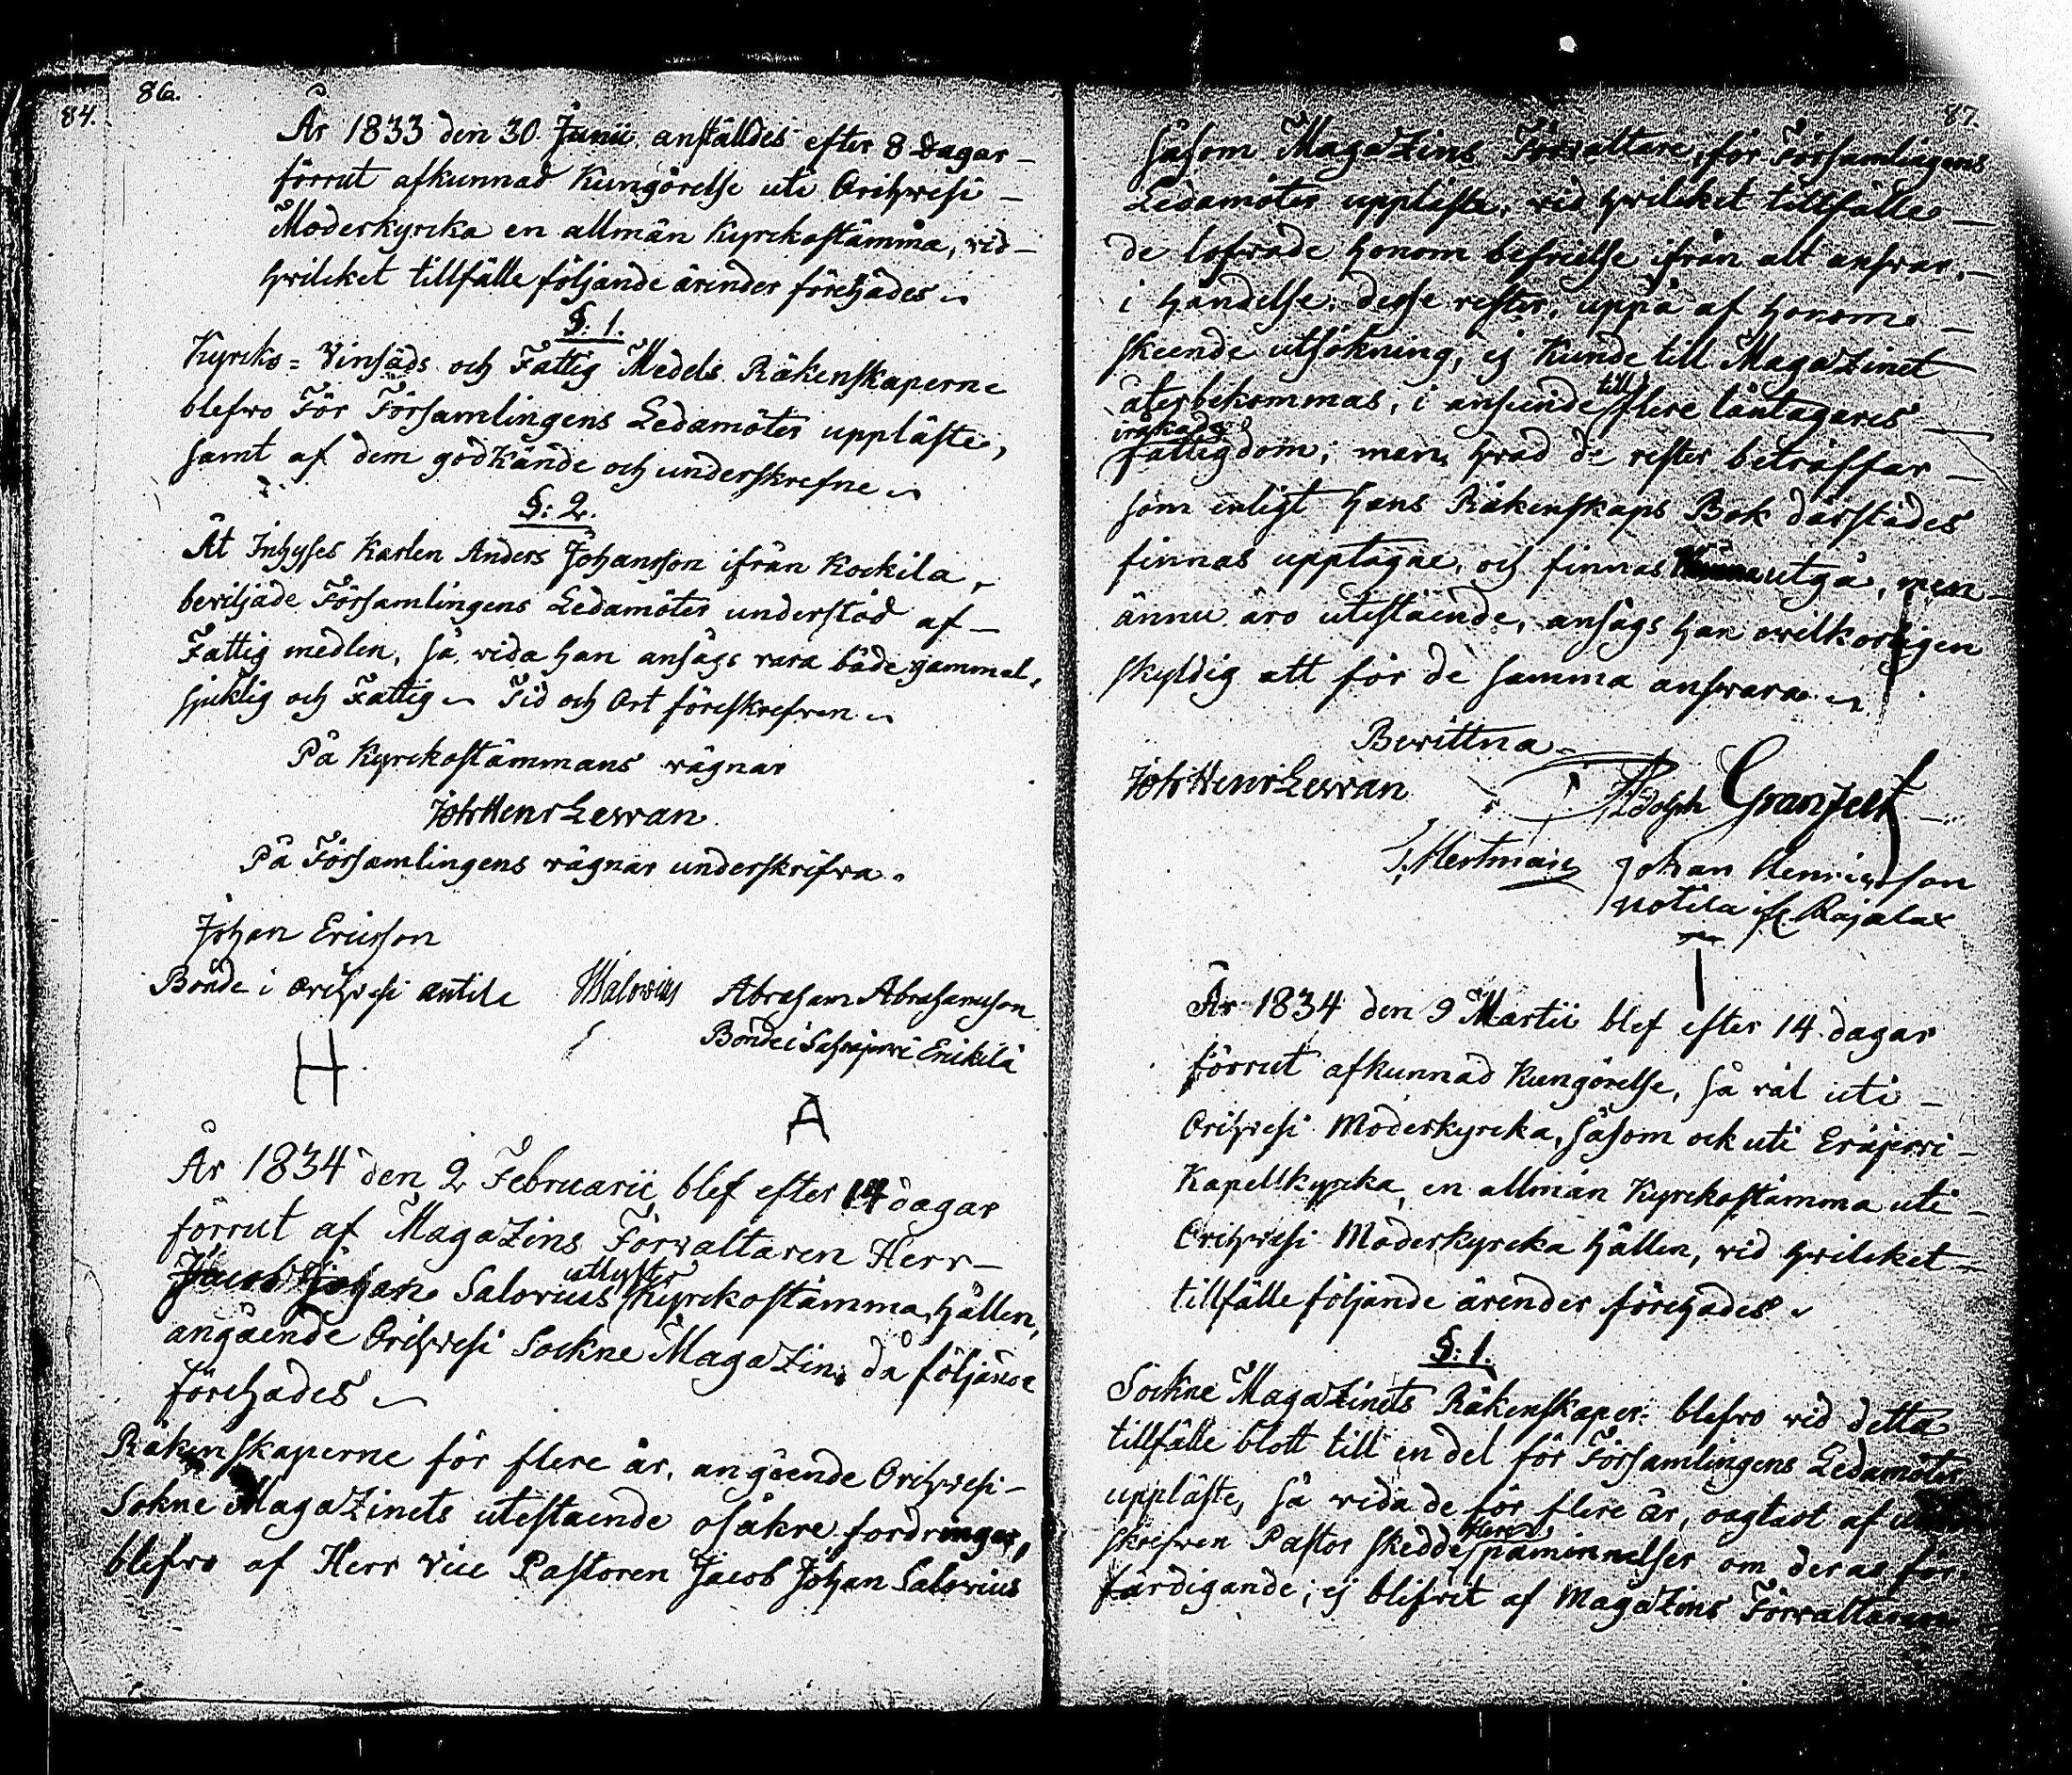 84.
86.
År 1833 den 30 Junii anstäldes efter 8 Dagar
förrut afkunnad Kungörelse uti Orihwesi
Moderkyrcka en allmän Kyrckostämma, vid
hvilcket tillfälle följande ärender förehades
§: 1.
Kyrcko= Vinsäds och Fattig Medels Räkenskaperne
blefvo För Församlingens Ledamöter uppläste,
samt af dem godkände och underskrefne
§: 2.
Åt Inhyses Karlen Anders Johansson ifrån Kockila,
beviljade Församlingens Ledamöter understöd af
Fattig medlen, så vida han ansågs vara både gammal,
sjuklig och Fattig Tid och Ort föreskrefven
På Kyrckostämmans vägnar
Joh Henr Levan
På Församlingens vägnar underskrifva.
Johan Ericsson
Bonde i Orihvesi Antila Salovius Abraham Abrahamsson
Bonde i Erikilä
H
A
År 1834 den 2 Februarii blef efter 14 dagar
förrut af MagaZins Förvaltaren Herr
Jacob Johan Salovius utlyster Kyrckostämma hållen,
angående Orihvesi Sockne MagaZin, då följande
förehades
Räkenskaperne för flere år, angående Orihvesi
Sokne MagaZinets utestaende osäkre fordringar,
blefvo af Herr Vice Pastoren Jacob Johan Salovius
87.
såsom MagaZins Förvaltare, för Församlingens
Ledamöter uppläste, vid hvilcket tillfälle
de lofvade honom befrielse ifrån alt ansvar,
i händelse, desse rester, uppå af honom
skeende utsökning, ej Kunde till MagaZinet
återbekommas, i anseende till flere låntagares
iråkade
fattigdom; men hvad de rester beträffar
som enligt hans Räkenskaps Bok därstädes
finnas upptagne, och finnas utgå, men
ännu äro utestående, ansågs han ovilkorligen
skyldig att för de samma ansvara
Bevittna
Joh Henr Levan Adolph Granfelt
J. Hertman Johan Henricsson
Notila if. Rajalax
År 1834 den 9 Martii blef efter 14 dagar
förrut afkunnad Kungörelse, så väl uti
Orihvesi Moderkyrcka, såsom ock uti Eräjervi
Kapellkyrcka, en allmän Kyrckostämma uti
Orihvesi Moderkyrcka hållen, vid hvilcket
tillfälle följande ärender förehades
§: 1.
Sockne MagaZinets Räkenskaper blefvo vid detta
tillfälle blott till en del för Församlingens Ledamöter
uppläste, så vida de för flere år, oagtadt af
skrefven Pastor skedde flere påminnelser om deras för-
färdigande; ej blifvit af MagaZins Förvaltaren